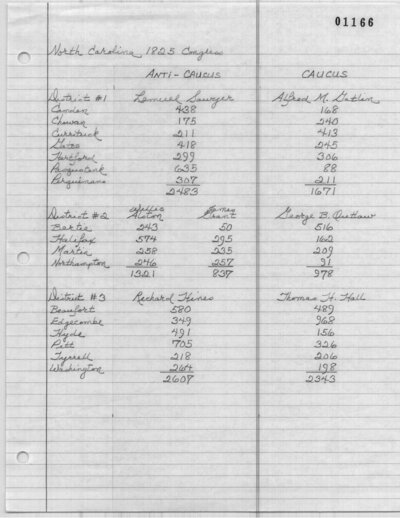 01166
North Carolina 1825 Congress
ANTI-CAUCUS CAUCUS
District #1 Lemuel Sawyer Alfred M. Gatlin
Camden 438 168
Chowan 175 240
Currituck 211 413
Gates 418 245
Hertford 299 306
Pasquotank 635 88
Perquimans 307 211
2483 1671
Willis
District #2 Alston Grant George B. Outlaw
Bertie 243 50 516
Halifax 574 295 162
Martin 258 235 209
Northampton 246 257 91
1321 837 978
District #3 Richard Hines Thomas H. Hall
Beaufort 580 489
Edgecombe 349 968
Hyde 491 156
Pitt 705 326
Tyrrell 218 206
Washington 264 198
2607 2343